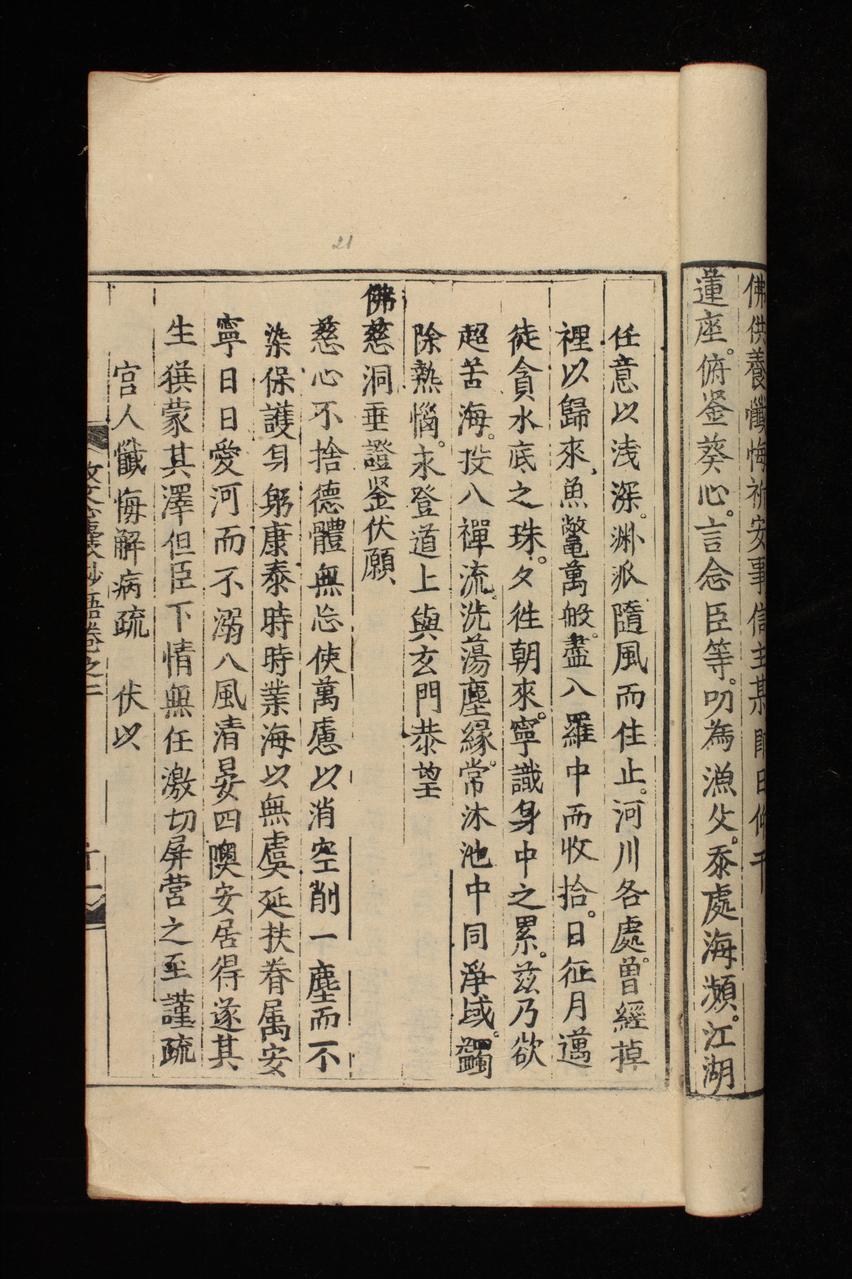 佛供養懺悔祈安事信主某即日仰干
蓮座。俯鉴葵心。言念臣等。叨為漁父。忝處海瀕。江湖
任意以浅深。渊泒隨風而住止。河川各處。曾經掉
裡以歸來。魚鼈萬般。盡八羅中而收拾。日征月邁
徒貪水底之珠。夕徃朝來。寧識身中之累。兹乃欲
超苦海。投八禪流。洗蕩塵緣。常沐池中同淨域。蠲
除熱惱。永登道上與玄門恭望
佛慈洞垂證鉴伏願
慈心不捨德體無忘使萬慮以消空削一塵而不
染保護身躬康泰時時業海以無虞延扶眷属安
寧日日愛河而不溺八風清晏四隩安居得遂其
生獲蒙其澤但臣下情無任激切屏营之至謹疏
宫人懺悔解病疏 伏以
卷之二
21